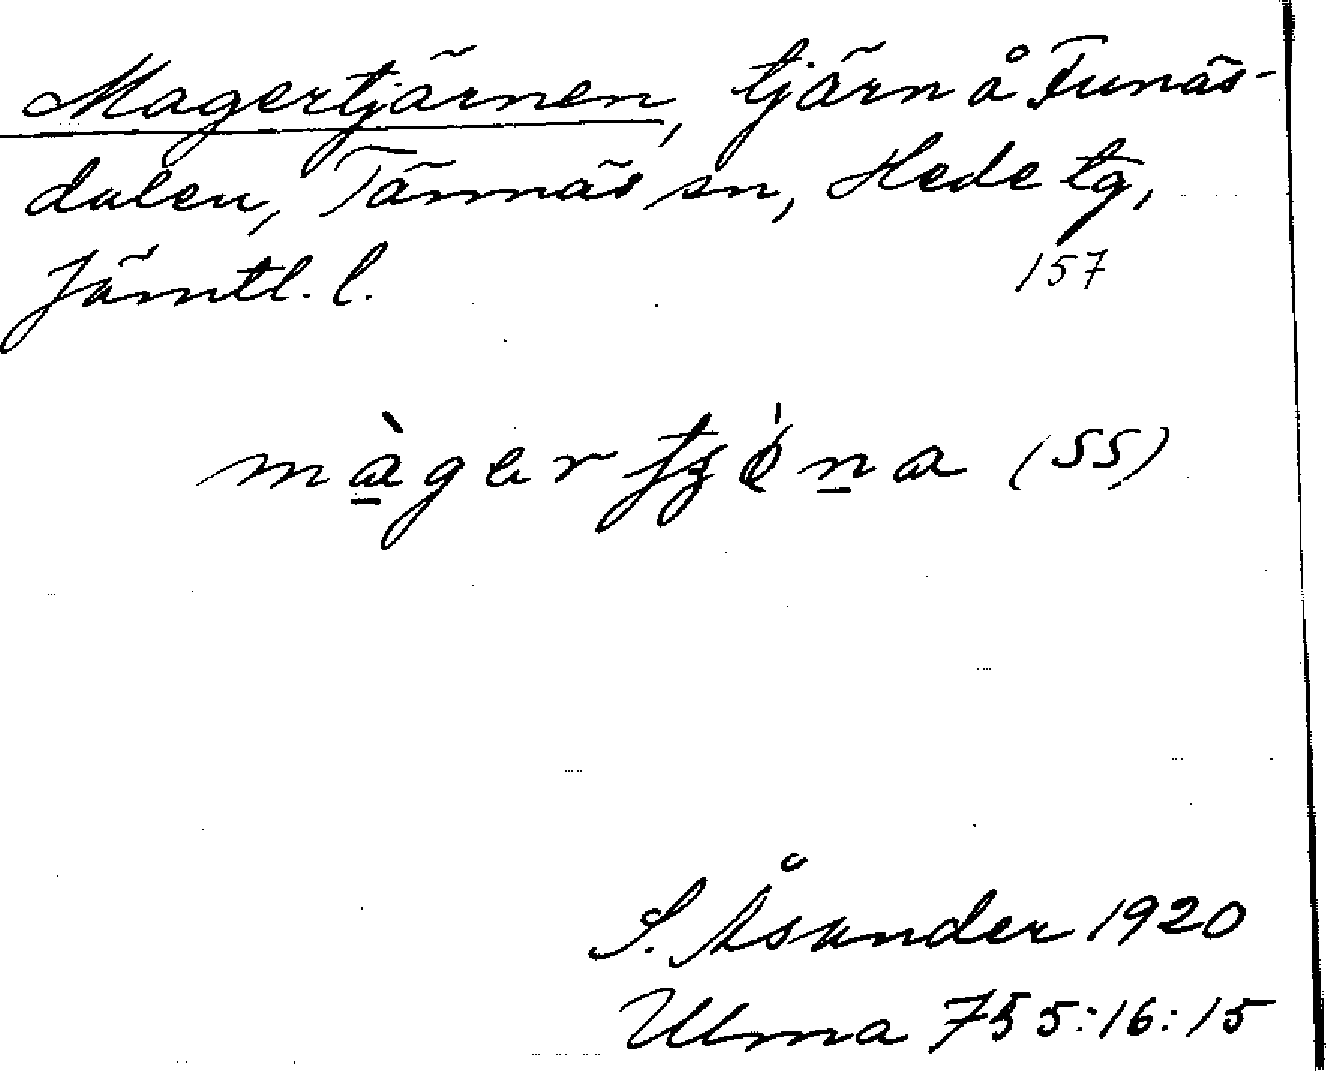 Magertjärnen, tjärn å Funäs-
dalen, Tännäs sn, Hede tg,
Jämtl. l.
157
(SS)
S. Åsander 1920
Ulma 755:16:15